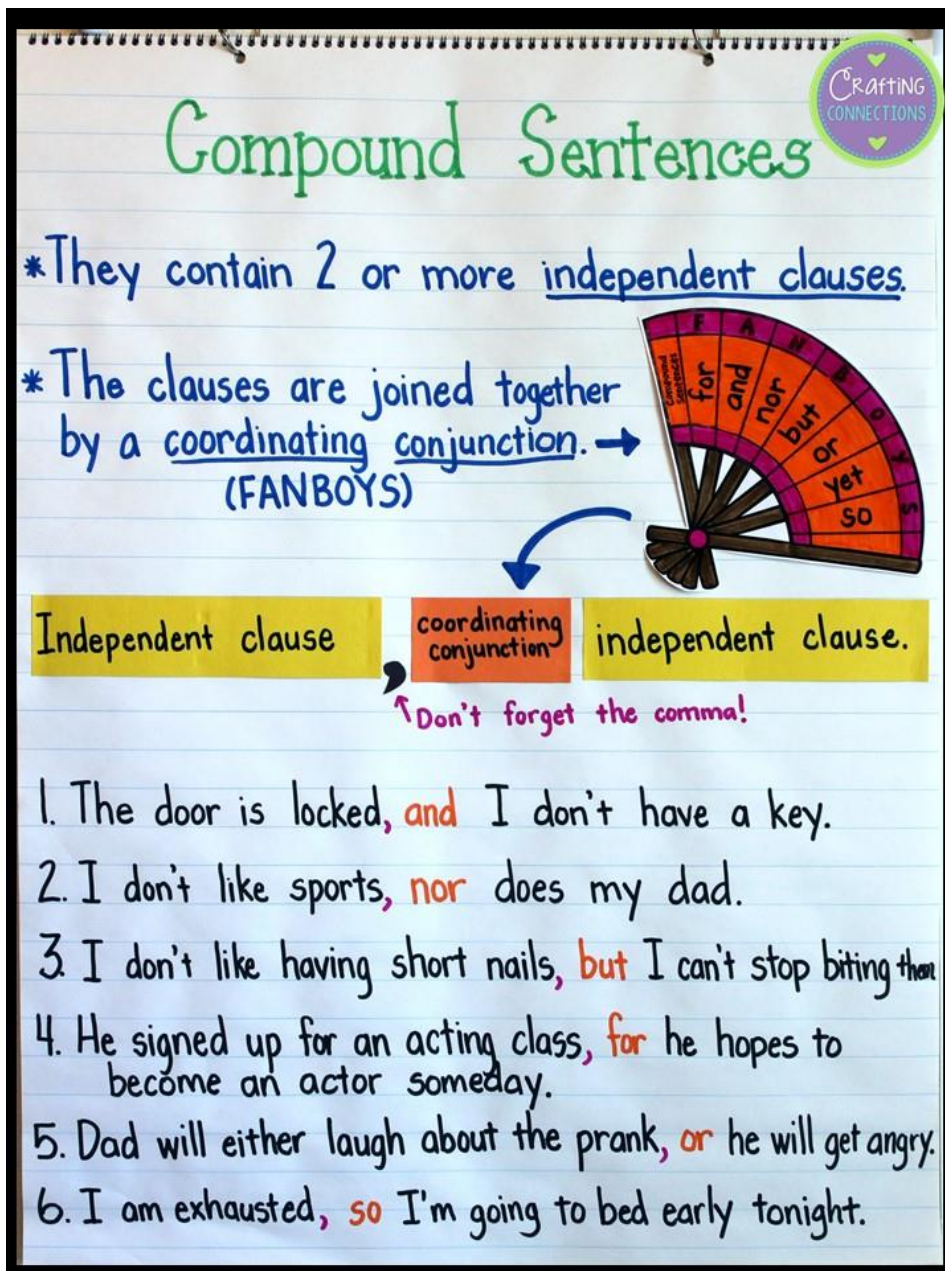 CRAFTING
CONNECTIONS
Compound Sentences
*They contain 2 or more independent clauses.
* The clauses are joined together
by a coordinating conjunction.
(FANBOYS)
Compound
Sentences
F
for
A
and
N
nor
B
but
O
or
Y
yet
S
so
Independent clause
,
coordinating
conjunction
independent clause.
Don't forget the comma!
1. The door is locked, and I don't have a key.
2. I don't like sports, nor does my dad.
3. I don't like having short nails, but I can't stop biting them
4. He signed up for an acting class, for he hopes to
become an actor someday.
5. Dad will either laugh about the prank, or he will get angry.
6. I am exhausted, so I'm going to bed early tonight.